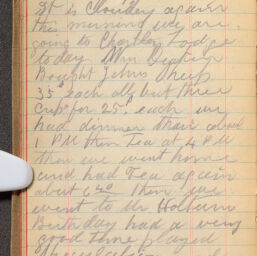 It is Clouday again
this morning we are
going to Chartley Lodge
to day Mr
Bought Johns Sheep
35s each all but three
for 25s each we
had dinner thair about
1 PM then Tea at 4 PM
then we went home
and had Tea again
about 6 30 then we
went to Mr
Birthday had a very
good time played